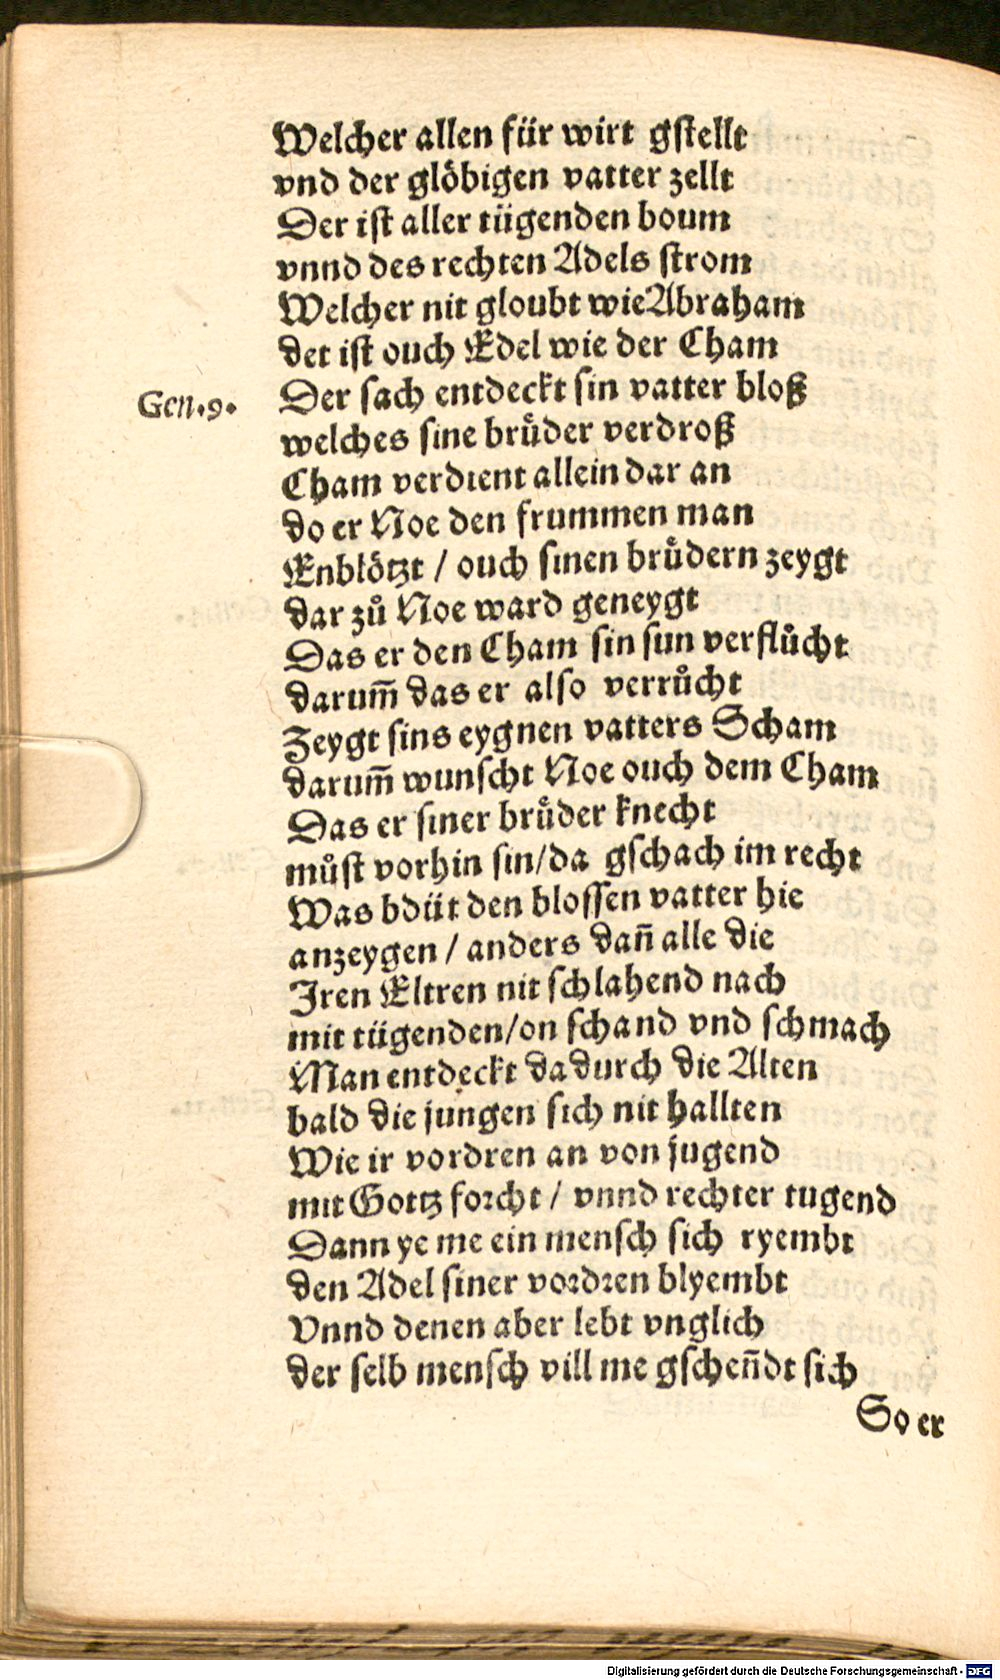 Welcher allen für wirt gstellt
vnd der glöbigen vatter zellt
Der ist aller tügenden boum
vnnd des rechten Adels strom
Welcher nit gloubt wie Abraham
det ist ouch Edel wie der Cham
Gen.9. Der sach entdeckt sin vatter bloß
welches sine brůder verdroß
Cham verdient allein dar an
do er Noe den frummen man
Enblötzt / ouch sinen brůdern zeygt
dar zů Noe ward geneygt
Das er den Cham sin sun verflůcht
darum̃ das er also verrůcht
Zeygt sins eygnen vatters Scham
darum̃ wunscht Noe ouch dem Cham
Das er siner brůder knecht
můst vorhin sin/da gschach im recht
Was bdüt den blossen vatter hie
anzeygen / anders dañ alle die
Iren Eltren nit schlahend nach
mit tügenden/on schand vnd schmach
Man entdeckt da durch die Alten
bald die jungen sich nit hallten
Wie ir vordren an von jugend
mit Gottz forcht / vnnd rechter tugend
Dann ye me ein mensch sich ryembt
den Adel siner vordren blyembt
Vnnd denen aber lebt vnglich
der selb mensch vill me gscheñdt sich
So er
Digitalisierung gefördert durch die Deutsche Forschungsgemeinschaft - DFG